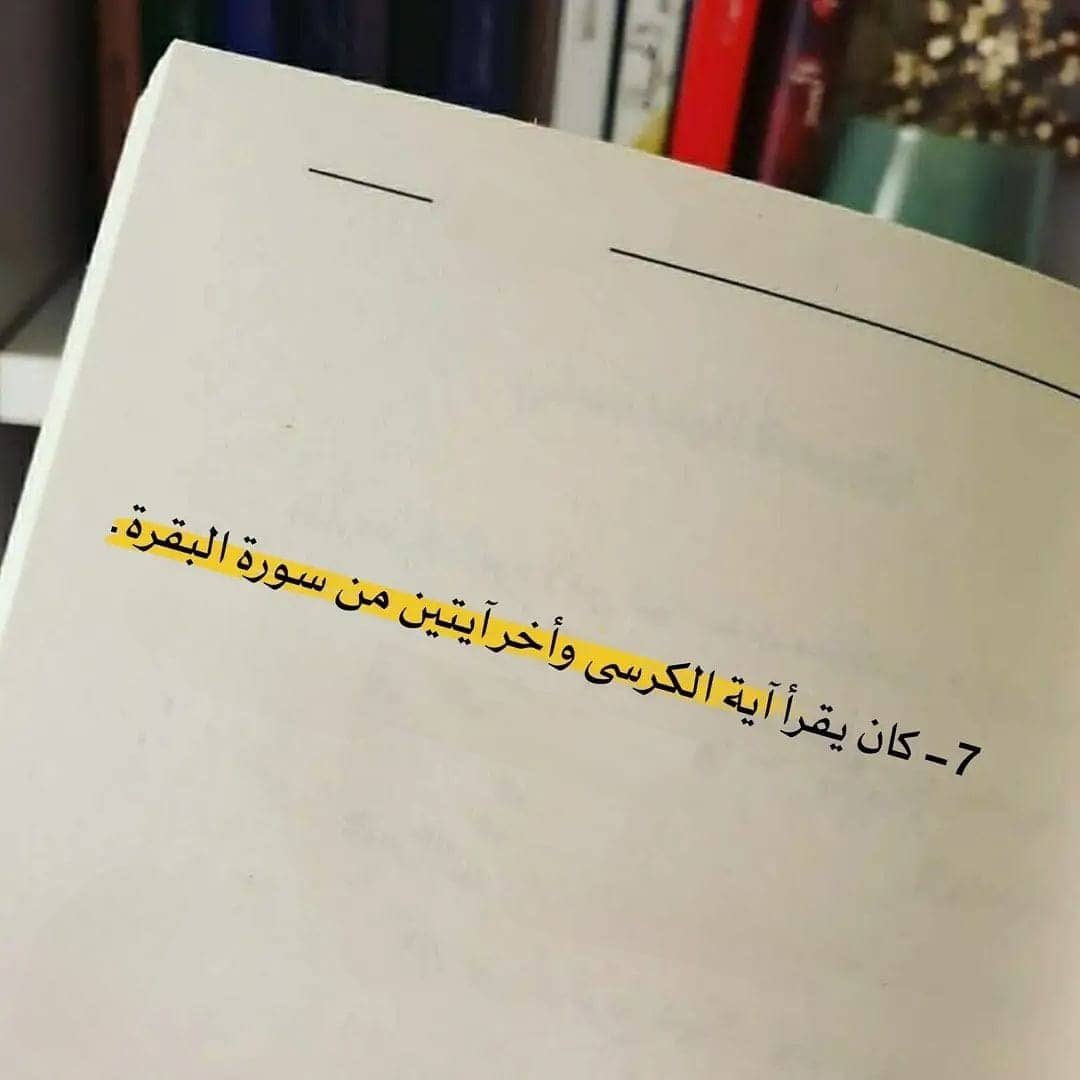 7 – كان يقرأ آية الكرسى وأخر آيتين من سورة البقرة.